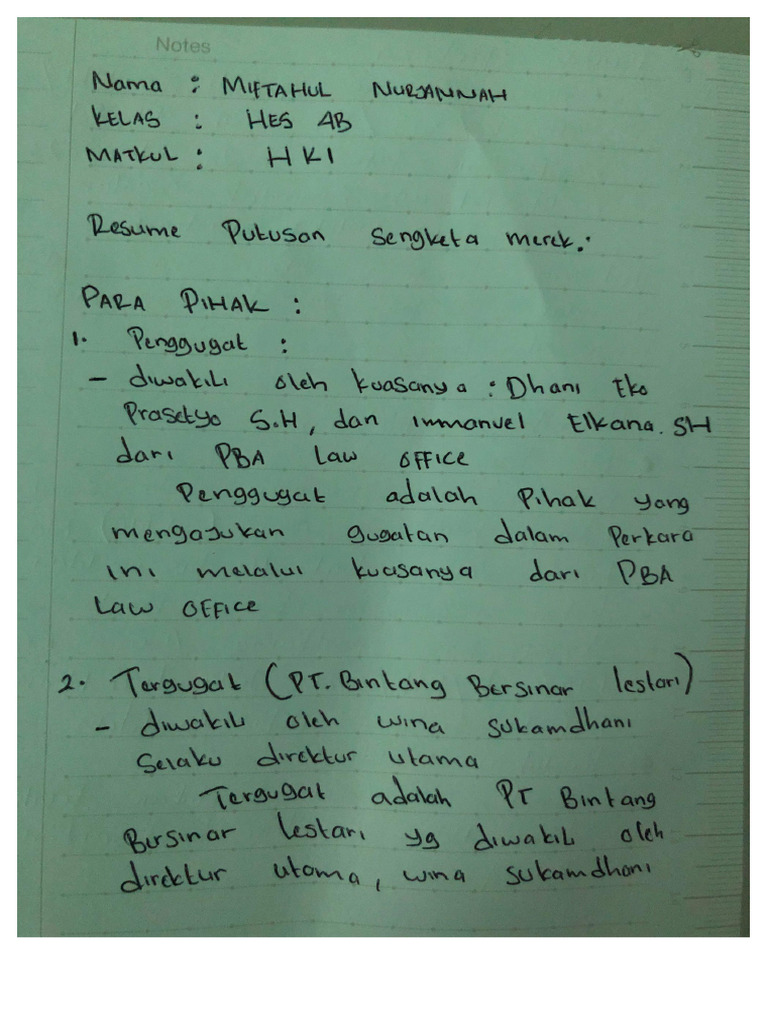 Notes
Nama : MIFTAHUL NURJANNAH
KELAS : HES 4B
MATKUL : HKI
Resume Putusan Sengketa merek.
PARA PIHAK :
1. Penggugat :
- diwakili oleh kuasanya : Dhani Eko
Prasetyo S.H, dan Immanuel Elkana. SH
dari PBA Law OFFice
Penggugat adalah Pihak yang
mengajukan gugatan dalam Perkara
ini melalui kuasanya dari PBA
Law OFFice
2. Tergugat (PT. Bintang Bersinar lestari)
- diwakili oleh wina sukamdhani
Selaku direktur utama
Tergugat adalah PT Bintang
Bersinar lestari yg diwakili oleh
direktur utama, wina sukamdhani